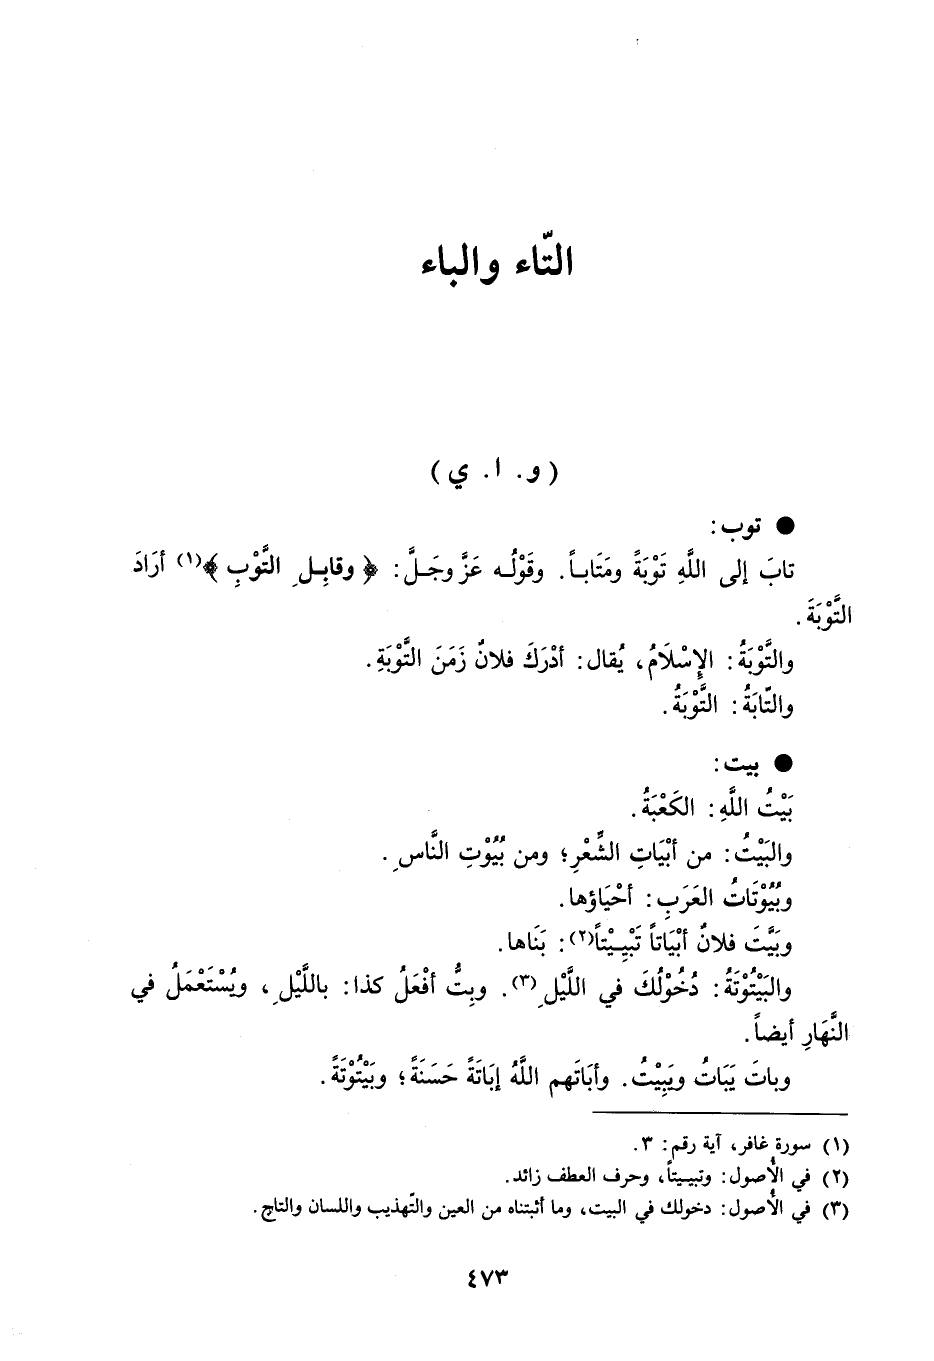 التّاء والباء
(و. ا. ي)
● توب:
تابَ إلى اللَّهِ تَوْبَةً ومَتَابـاً. وقَوْلُـه عَزَّ وجَـلَّ: ﴿ وقابِـلِ التَّوْبِ ﴾(١) أرَادَ
التَّوْبَةَ.
والتَّوْبَةُ: الإِسْلَامُ، يُقال: أدْرَكَ فلانٌ زَمَنَ التَّوْبَةِ.
والتّابَةُ: التَّوْبَةُ.
● بيت:
بَيْتُ اللَّهِ: الكَعْبَةُ.
والبَيْتُ: من أبْيَاتِ الشِّعْرِ؛ ومن بُيُوْتِ النَّاسِ.
وبُيُوْتَاتُ العَرَبِ: أحْيَاؤها.
وبَيَّتَ فلانٌ أبْيَاتاً تَبْيِـيْتاً(٢): بَنَاها.
والبَيْتُوْتَةُ: دُخُوْلُكَ في اللَّيْلِ(٣). وبِتُّ أفْعَلُ كذا: باللَّيْلِ، ويُسْتَعْمَلُ في
النَّهَارِ أيضاً.
وباتَ يَبَاتُ ويَبِيْتُ. وأبَاتَهم اللَّهُ إبَاتَةً حَسَنَةً؛ وبَيْتُوْتَةً.
(١) سورة غافر، آية رقم: ٣.
(٢) في الأُصول: وتبيـيتاً، وحرف العطف زائد.
(٣) في الأُصول: دخولك في البيت، وما أثبتناه من العين والتّهذيب واللسان والتاج.
٤٧٣